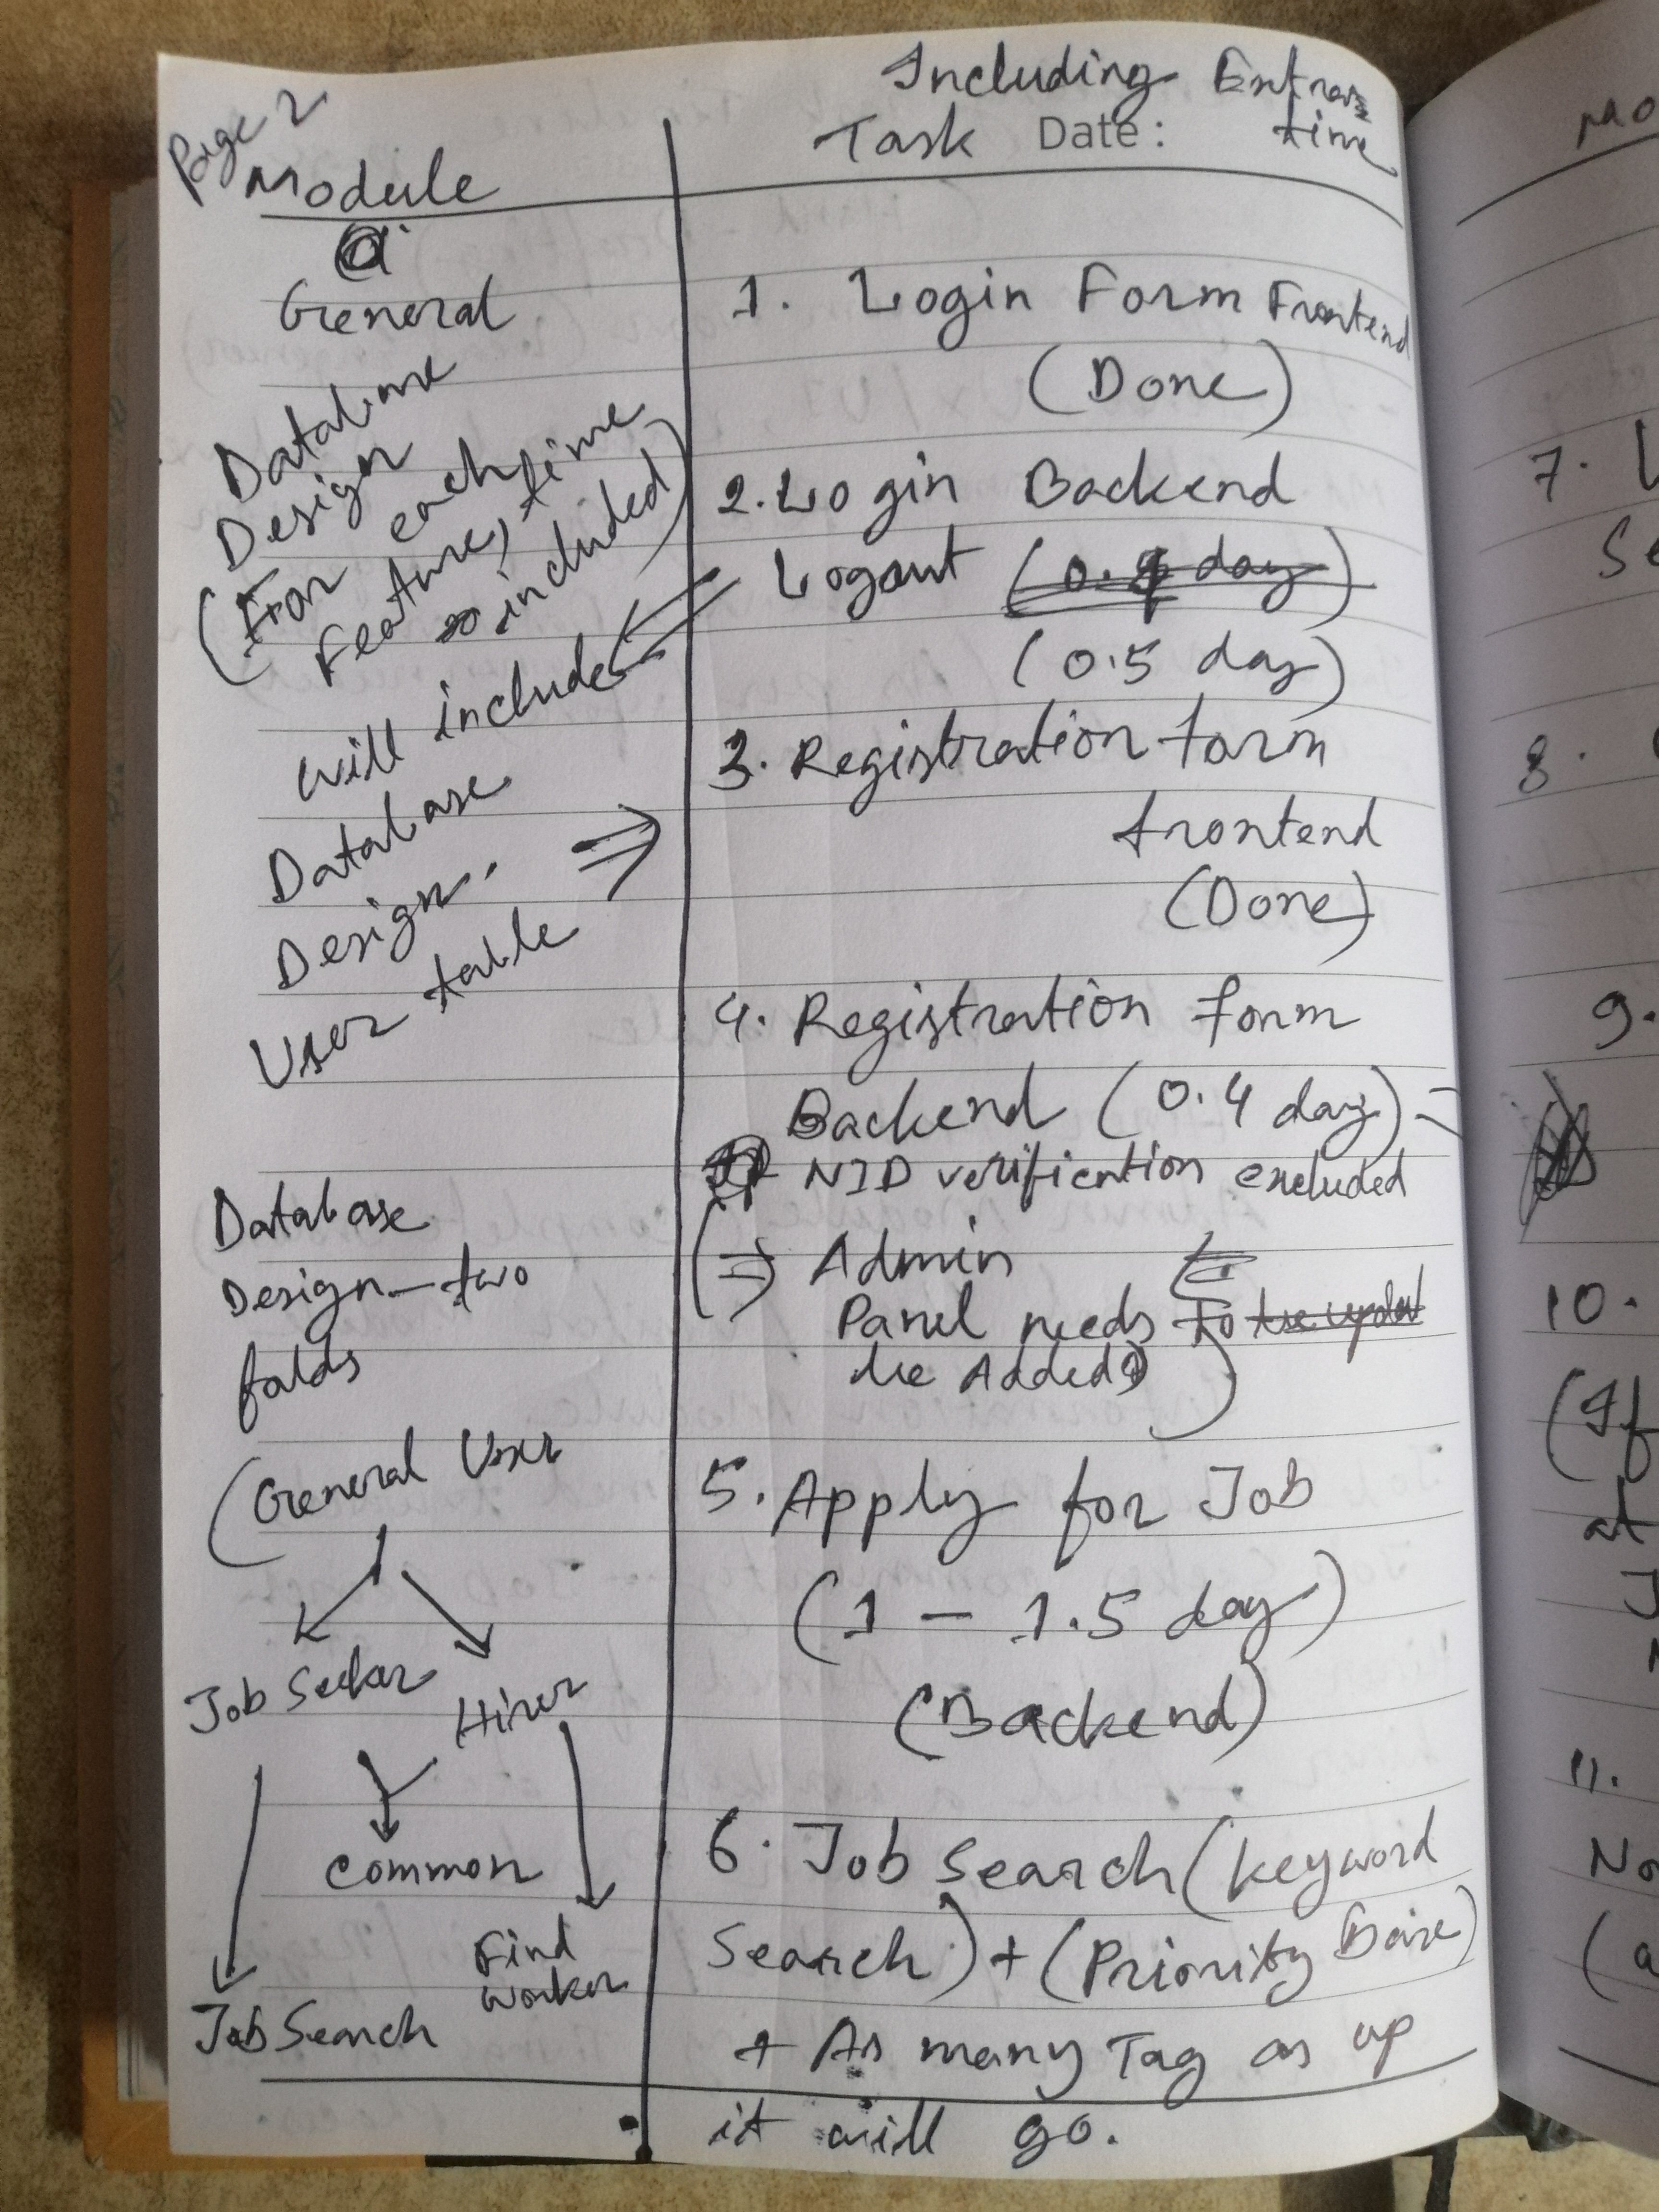 Page 2
Module
General
Database
Design
(For each
Feature, time
included)
will include
Database
Design.
User table
Database
Design - two
folds
(General User
Job Seeker
Hirer
Common
Find
worker
Job Search
Including Extra
time
Task Date:
1. Login Form Frontend
(Done)
2. Login Backend
Logout (0. day)
(0.5 day)
3. Registration form
frontend
(Done)
4. Registration form
Backend (0.4 day)
NID verification excluded
(⇒ Admin
Panel needs to
be Added)
5. Apply for Job
(1 - 1.5 day)
(Backend)
6. Job Search (keyword
Search) + (Priority Base)
+ As many Tag as up
it will go.
7.
8.
9.
10.
(If
at
11.
(a